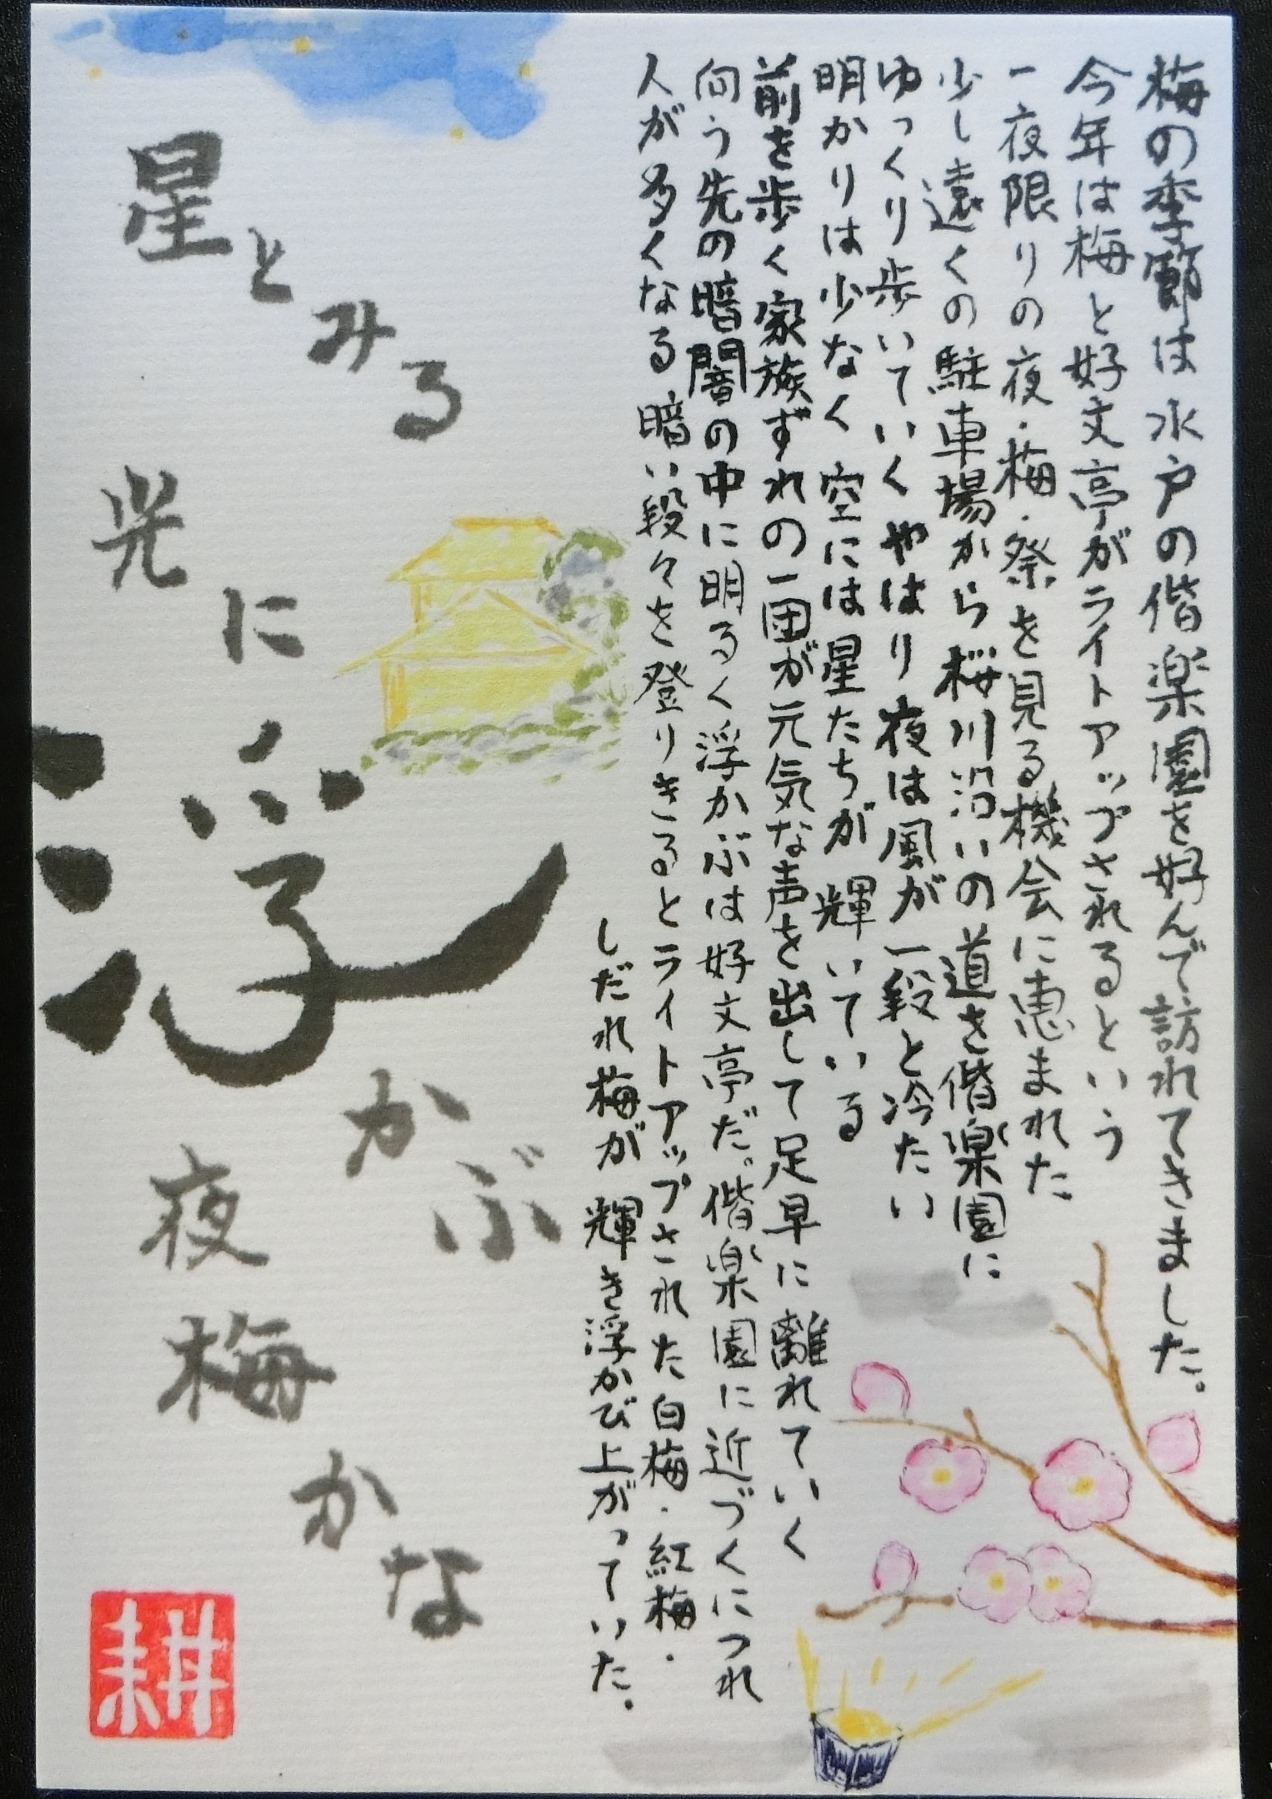 梅の季節は水戸の偕楽園を好んで訪れてきました。
今年は梅と好文亭がライトアップされるという
一夜限りの夜・梅・祭を見る機会に恵まれた
少し遠くの駐車場から桜川沿いの道を偕楽園に
ゆっくり歩いていく やはり夜は風が一段と冷たい
明かりは少なく空には星たちが輝いている
前を歩く家族ずれの一団が元気な声を出して足早に離れていく
向う先の暗闇の中に明るく浮かぶは好文亭だ。偕楽園に近づくにつれ
人が多くなる 暗い段々を登りきるとライトアップされた白梅・紅梅・
しだれ梅が輝き浮かび上がっていた。
星とみる
光に
浮かぶ
夜梅かな
耕